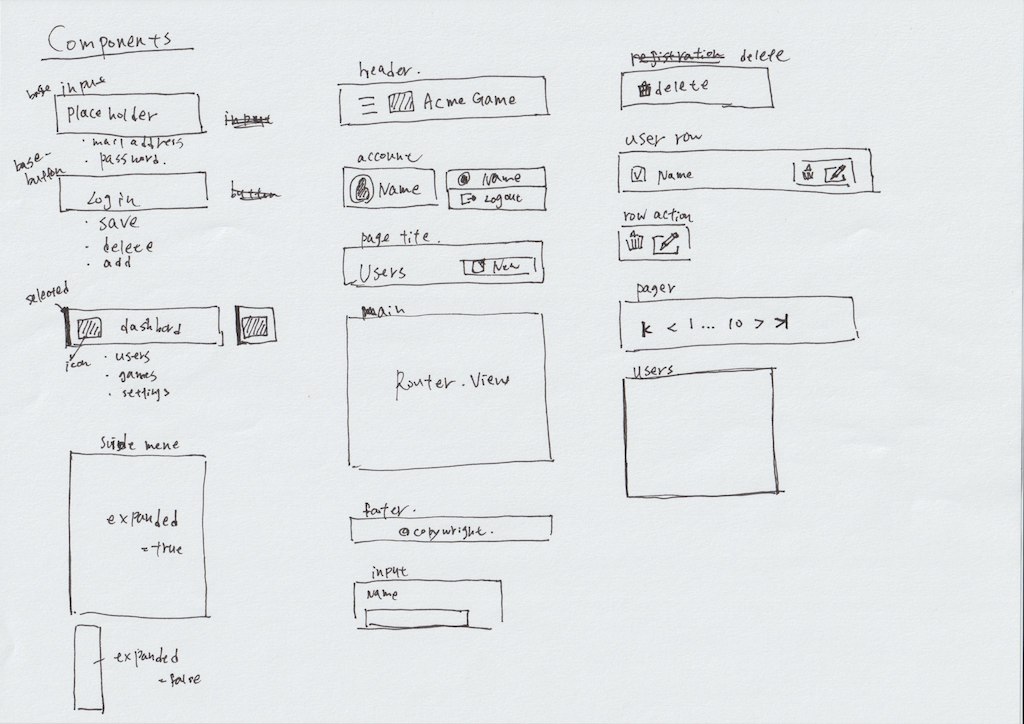 Components
base input
Place holder
input
・mail address
・password.
base-
button
Login
button
・save
・delete
・add
selected
dashbord
icon
・users
・games
・settings
side mene
expanded
=true
expanded
=false
header.
Acme Game
account
Name
Name
Logout
page title.
Users
New
main
Router.View
footer.
©copywright.
input
Name
registration delete
delete
user row
Name
row action
pager
K < 1 ... 10 > >|
users